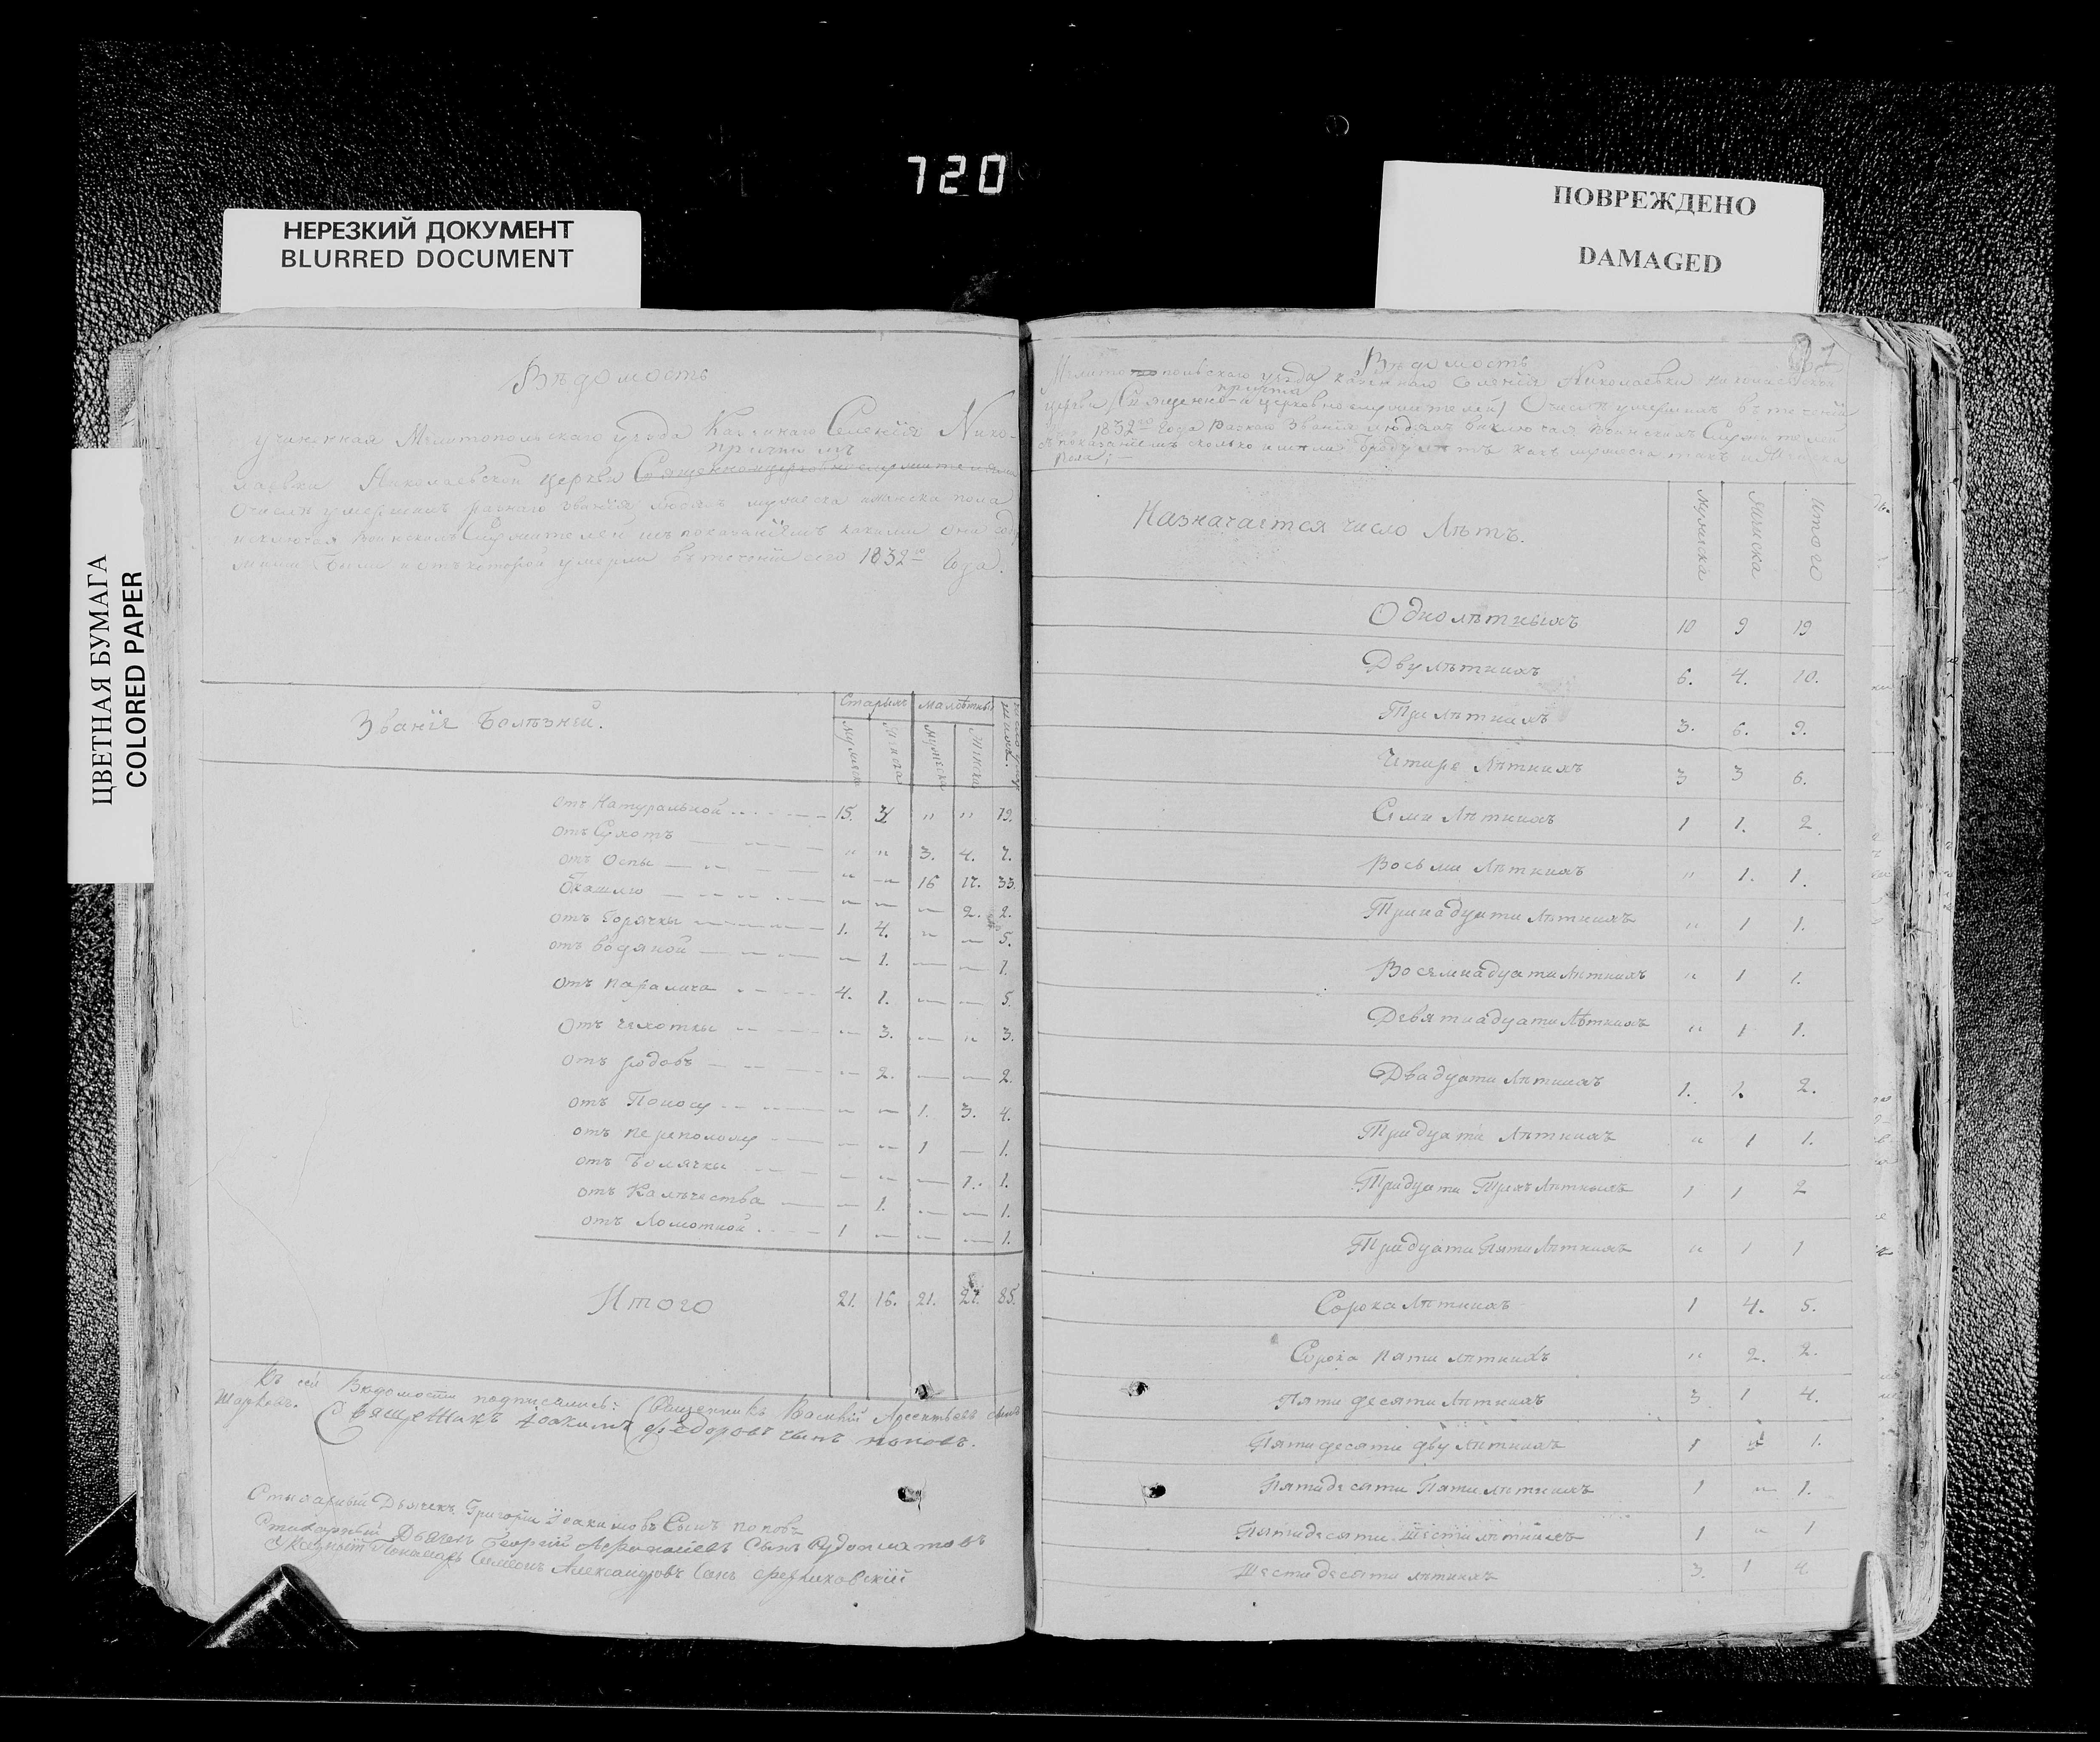 720
НЕРЕЗКИЙ ДОКУМЕНТ
BLURRED DOCUMENT
ПОВРЕЖДЕНО
DAMAGED
ЦВЕТНАЯ БУМАГА
COLORED PAPER
Вѣдомость
учиненная Мелитопольскаго уезда Казеннаго Селенія Нико-
причтомъ
лаевки Николаевской церкви Священноцерковнослужителями
О числѣ умершихъ разнаго званія людехъ мужеска и женска пола
1832го Года.
Званіе Болѣзней.
Старыхъ Малолѣтных
мужеска женска мужеска женска
отъ Натуральной 15. 19.
отъ Сухотъ " " 3. 4. 7.
отъ Оспы " — 16 17. 33.
Откашлю — — — 2. 2.
отъ Горячки 1. 4. " — 5.
отъ водяной — 1. — — 1.
отъ паралича 4. 1. — — 5.
отъ чехотки — 3. — " 3.
отъ родовъ — 2. — — 2.
отъ Поносу — — 1. 3. 4.
отъ переполоху — — 1 — 1.
отъ Болячки — — — 1. 1.
отъ Калѣчества — 1. — — 1.
отъ Ломотной 1 — — — 1.
Итого 21. 16. 21. 27. 85.
Къ сей Ведомости подписались: Священникъ Василій Арсентьевъ сынъ
Священникъ Іоакимъ Федоровъ сынъ поповъ.
Стихарный Дьячекъ Григорій Іоакимовъ Сынъ поповъ
Стихарный Дьячекъ Георгій Сынъ
Указный Пономарь Симеонъ Александровъ Сынъ
91
Вѣдомость
Мелитопольскаго уезда казеннаго Селенія Николаевки Николаевской
причта
церкви (Священно-и церковнослужителей) О числѣ умершихъ в теченіи
1832го Года разнаго званія людехъ
съ показаніемъ сколько
пола;—
Назначается число Лѣтъ.
мужеска
женска
Итого
Однолѣтныхъ 10 9 19
Двулѣтнихъ 6. 4. 10.
Трилѣтнихъ 3. 6. 9.
Четыре Лѣтнихъ 3 3 6.
Семи Лѣтнихъ 1 1. 2.
Восьми Лѣтнихъ " 1. 1.
Тринадцати Лѣтнихъ " 1 1.
Восемнадцати Лѣтнихъ " 1 1.
Девятнадцати Лѣтнихъ " 1 1.
Двадцати Лѣтнихъ 1. 1. 2.
Тридцати Лѣтнихъ " 1 1.
Тридцати Трехъ Лѣтныхъ 1 1 2
Тридцати Пяти Лѣтнихъ " 1 1
Сорока Лѣтнихъ 1 4. 5.
Сорока Пяти Лѣтнихъ " 2. 2.
Пяти десяти Лѣтнихъ 3 1 4.
Пятидесяти дву Лѣтнихъ 1 1.
Пятидесяти Пяти Лѣтнихъ 1 " 1.
Пятидесяти Шести лѣтнихъ 1 " 1
Шестидесяти лѣтнихъ 3. 1 4